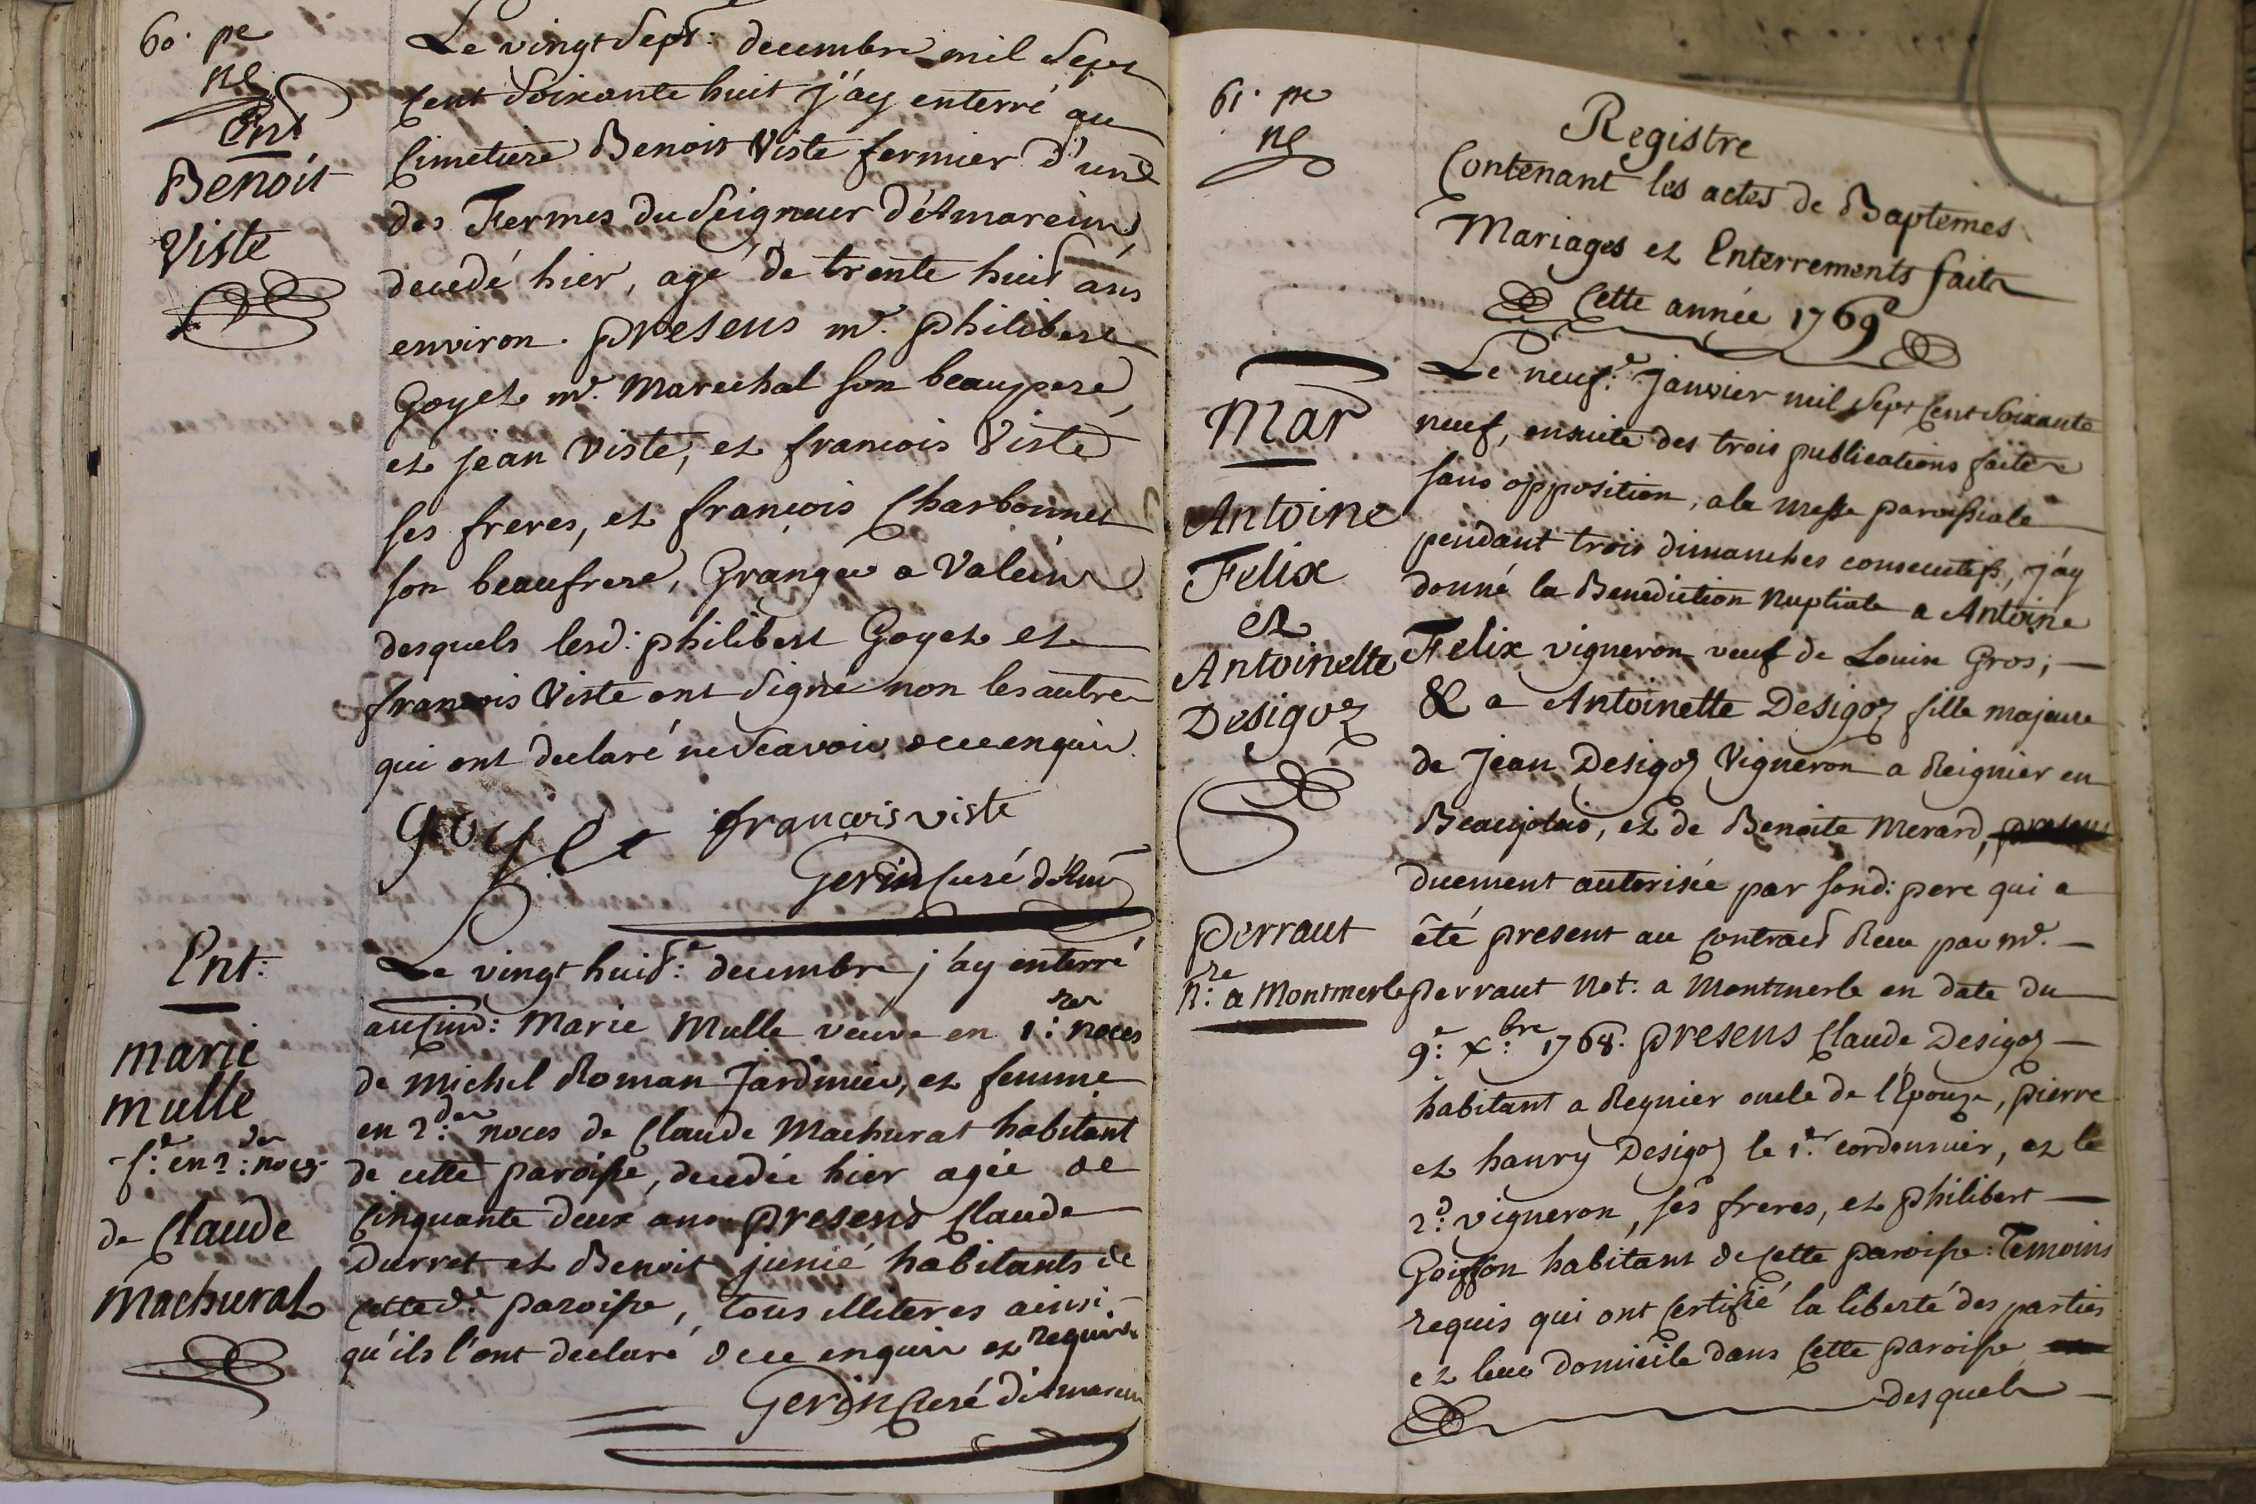 60. pe
ne
Ent
Benoit
Viste
Le vingt Sept: decembre mil Sept
Cent Soixante huit j'ay enterré au
Cimetiere Benoit Viste fermier d'une
des Fermes du Seigneur d'Amareins
decedé hier, agé de trente huit ans
environ. presens mr. philibert
Goyet me. Marechal son beaupere,
et jean Viste, et francois Viste
ses freres, et françois Charbonnet
son beaufrere, Granger a Valeins
desquels lesd: philibert Goyet et
francois Viste ont signé non les autres
qui ont declaré ne scavoir de ce enquis.
goyet françois viste
Gerin Curé d'Am
Ent:
marie
mulle
f.e en 2:des noces
de Claude
Machurat
Le vingt huit:e decembre j'ay enterré
au Cim: Marie Mulle veuve en 1:res noces
de Michel Roman Jardinier, et femme
en 2:des noces de Claude Machurat habitant
de cette paroisse, decedée hier agée de
Cinquante deux ans presens Claude
Durret et Benoit junié habitants de
cette d.e paroisse, tous illiteres ainsi
qu'ils l'ont declaré de ce enquis et requis
Gerin Curé d'Amareins
61. pe
ne
Registre
Contenant les actes de Baptemes
Mariages et Enterrements faits
Cette année 1769
Mar
Antoine
Felix
et
Antoinette
Desigoz
Perraut
n:re a Montmerle
Le neuf:e janvier mil Sept Cent Soixante
neuf, ensuite des trois publications faites
sans opposition, a la Messe paroissiale
pendant trois dimanches consecutifs, j'ay
donné la Benediction Nuptiale a Antoine
Felix vigneron veuf de Louise Gros; —
& a Antoinette Desigoz fille majeure
de Jean Desigoz Vigneron a Reignier en
Beaujolais, et de Benoite Merard, presens
duement autorisée par sond: pere qui a
été present au Contract Recu par me. —
Perraut Not: a Montmerle en date du
9:e X:bre 1768. presens Claude Desigoz —
habitant a Regnier oncle de l'Epouze, pierre
et hanry Desigoz le 1.er cordonnier, et le
2:d vigneron, ses freres, et philibert —
Goiffon habitant de cette paroisse: Temoins
requis qui ont certifié la liberté des parties
et leur domicile dans Cette paroisse
desquels —